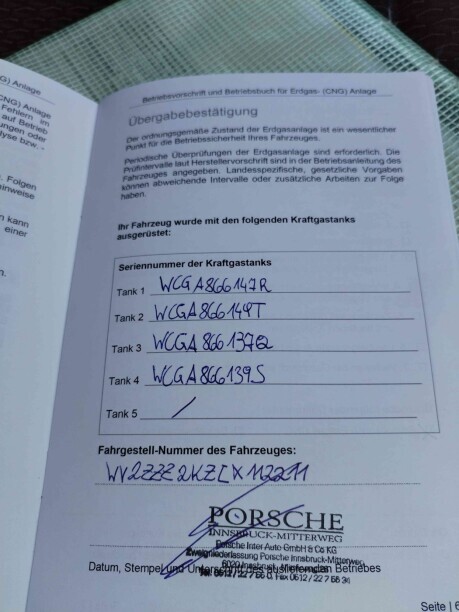 G) Anlage
CNG) Anlage
Fehlern im
auf Betrieb
ungen oder
lyse bzw.
Folgen
inweise
n kann
einer
n.
Betriebsvorschrift und Betriebsbuch für Erdgas- (CNG) Anlage
Übergabebestätigung
Der ordnungsgemäße Zustand der Erdgasanlage ist ein wesentlicher
Punkt für die Betriebssicherheit Ihres Fahrzeuges.
Periodische Überprüfungen der Erdgasanlage sind erforderlich. Die
Prüfintervalle laut Herstellervorschrift sind in der Betriebsanleitung des
Fahrzeuges angegeben. Landesspezifische, gesetzliche Vorgaben
können abweichende Intervalle oder zusätzliche Arbeiten zur Folge
haben.
Ihr Fahrzeug wurde mit den folgenden Kraftgastanks
ausgerüstet:
Seriennummer der Kraftgastanks
Tank 1 WCGA866147R
Tank 2 WCGA866149T
Tank 3 WCGA866137Q
Tank 4 WCGA866139S
Tank 5 /
Fahrgestell-Nummer des Fahrzeuges:
WV2ZZZ2KZCX112211
PORSCHE
INNSBRUCK-MITTERWEG
Porsche Inter Auto GmbH & Co KG
Zweigniederlassung Porsche Innsbruck-Mitterweg
6020 Innsbruck, Mitterweg
Datum, Stempel und Unterschrift des ausliefernden Betriebes
Tel. 0512/22 7 66 0, Fax 0512/22 7 66
Seite | 6